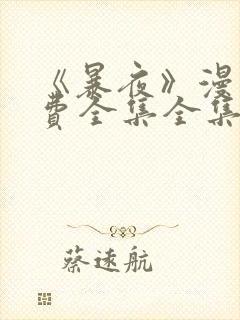 《暴夜》漫
费全集全集
蔡速航